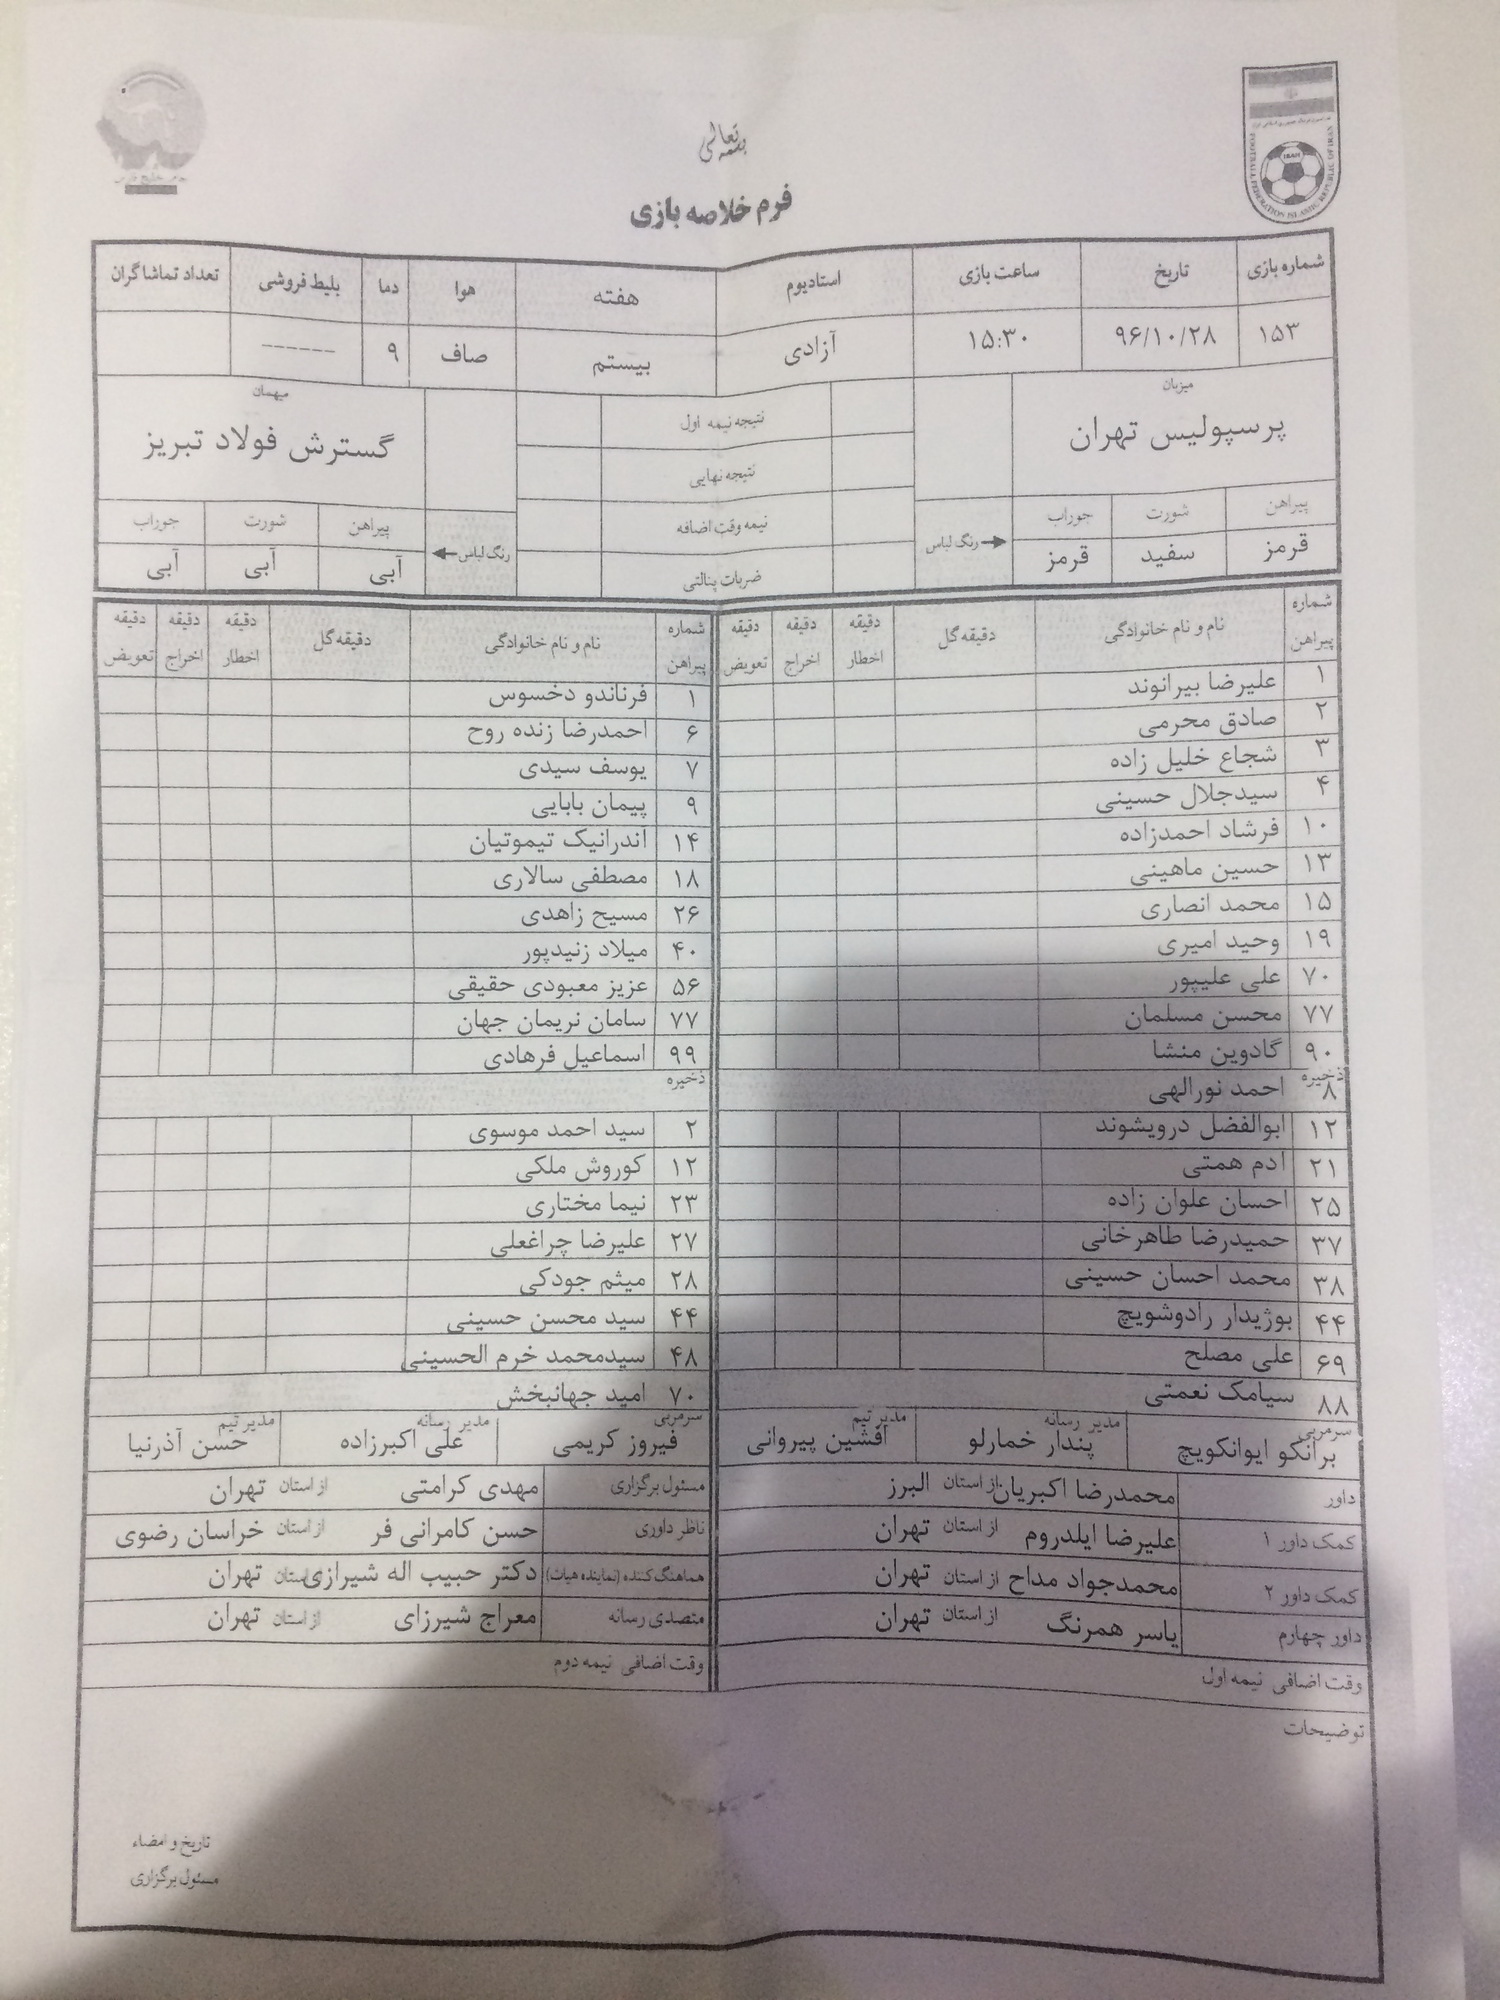 بسمه تعالی
فرم خلاصه بازی
FOOTBALL FEDERATION ISLAMIC REPUBLIC OF IRAN
IRAN
شماره بازی تاریخ ساعت بازی استادیوم هفته هوا دما بلیط فروشی تعداد تماشاگران
۱۵۳ ۹۶/۱۰/۲۸ ۱۵:۳۰ آزادی بیستم صاف ۹ ------
میزبان میهمان
پرسپولیس تهران نتیجه نیمه اول گسترش فولاد تبریز
نتیجه نهایی
پیراهن شورت جوراب رنگ لباس نیمه وقت اضافه رنگ لباس پیراهن شورت جوراب
قرمز سفید قرمز ضربات پنالتی آبی آبی آبی
شماره پیراهن نام و نام خانوادگی دقیقه گل دقیقه اخطار دقیقه اخراج دقیقه تعویض شماره پیراهن نام و نام خانوادگی دقیقه گل دقیقه اخطار دقیقه اخراج دقیقه تعویض
۱ علیرضا بیرانوند ۱ فرناندو دخسوس
۲ صادق محرمی ۶ احمدرضا زنده روح
۳ شجاع خلیل زاده ۷ یوسف سیدی
۴ سیدجلال حسینی ۹ پیمان بابایی
۱۰ فرشاد احمدزاده ۱۴ اندرانیک تیموتیان
۱۳ حسین ماهینی ۱۸ مصطفی سالاری
۱۵ محمد انصاری ۲۶ مسیح زاهدی
۱۹ وحید امیری ۴۰ میلاد زنیدپور
۷۰ علی علیپور ۵۶ عزیز معبودی حقیقی
۷۷ محسن مسلمان ۷۷ سامان نریمان جهان
۹۰ گادوین منشا ۹۹ اسماعیل فرهادی
ذخیره ذخیره
۸ احمد نورالهی
۱۲ ابوالفضل درویشوند ۲ سید احمد موسوی
۲۱ ادم همتی ۱۲ کوروش ملکی
۲۵ احسان علوان زاده ۲۳ نیما مختاری
۳۷ حمیدرضا طاهرخانی ۲۷ علیرضا چراغعلی
۳۸ محمد احسان حسینی ۲۸ میثم جودکی
۴۴ بوژیدار رادوشویچ ۴۴ سید محسن حسینی
۶۹ علی مصلح ۴۸ سیدمحمد خرم الحسینی
۸۸ سیامک نعمتی ۷۰ امید جهانبخش
سرمربی مدیر رسانه مدیر تیم سرمربی مدیر رسانه مدیر تیم
برانکو ایوانکویچ پندار خمارلو افشین پیروانی فیروز کریمی علی اکبرزاده حسن آذرنیا
داور محمدرضا اکبریان از استان البرز مسئول برگزاری مهدی کرامتی از استان تهران
کمک داور ۱ علیرضا ایلدروم از استان تهران ناظر داوری حسن کامرانی فر از استان خراسان رضوی
کمک داور ۲ محمدجواد مداح از استان تهران هماهنگ کننده (نماینده هیات) دکتر حبیب اله شیرازی استان تهران
داور چهارم یاسر همرنگ از استان تهران متصدی رسانه معراج شیرزای از استان تهران
وقت اضافی نیمه اول وقت اضافی نیمه دوم
توضیحات
تاریخ و امضاء
مسئول برگزاری